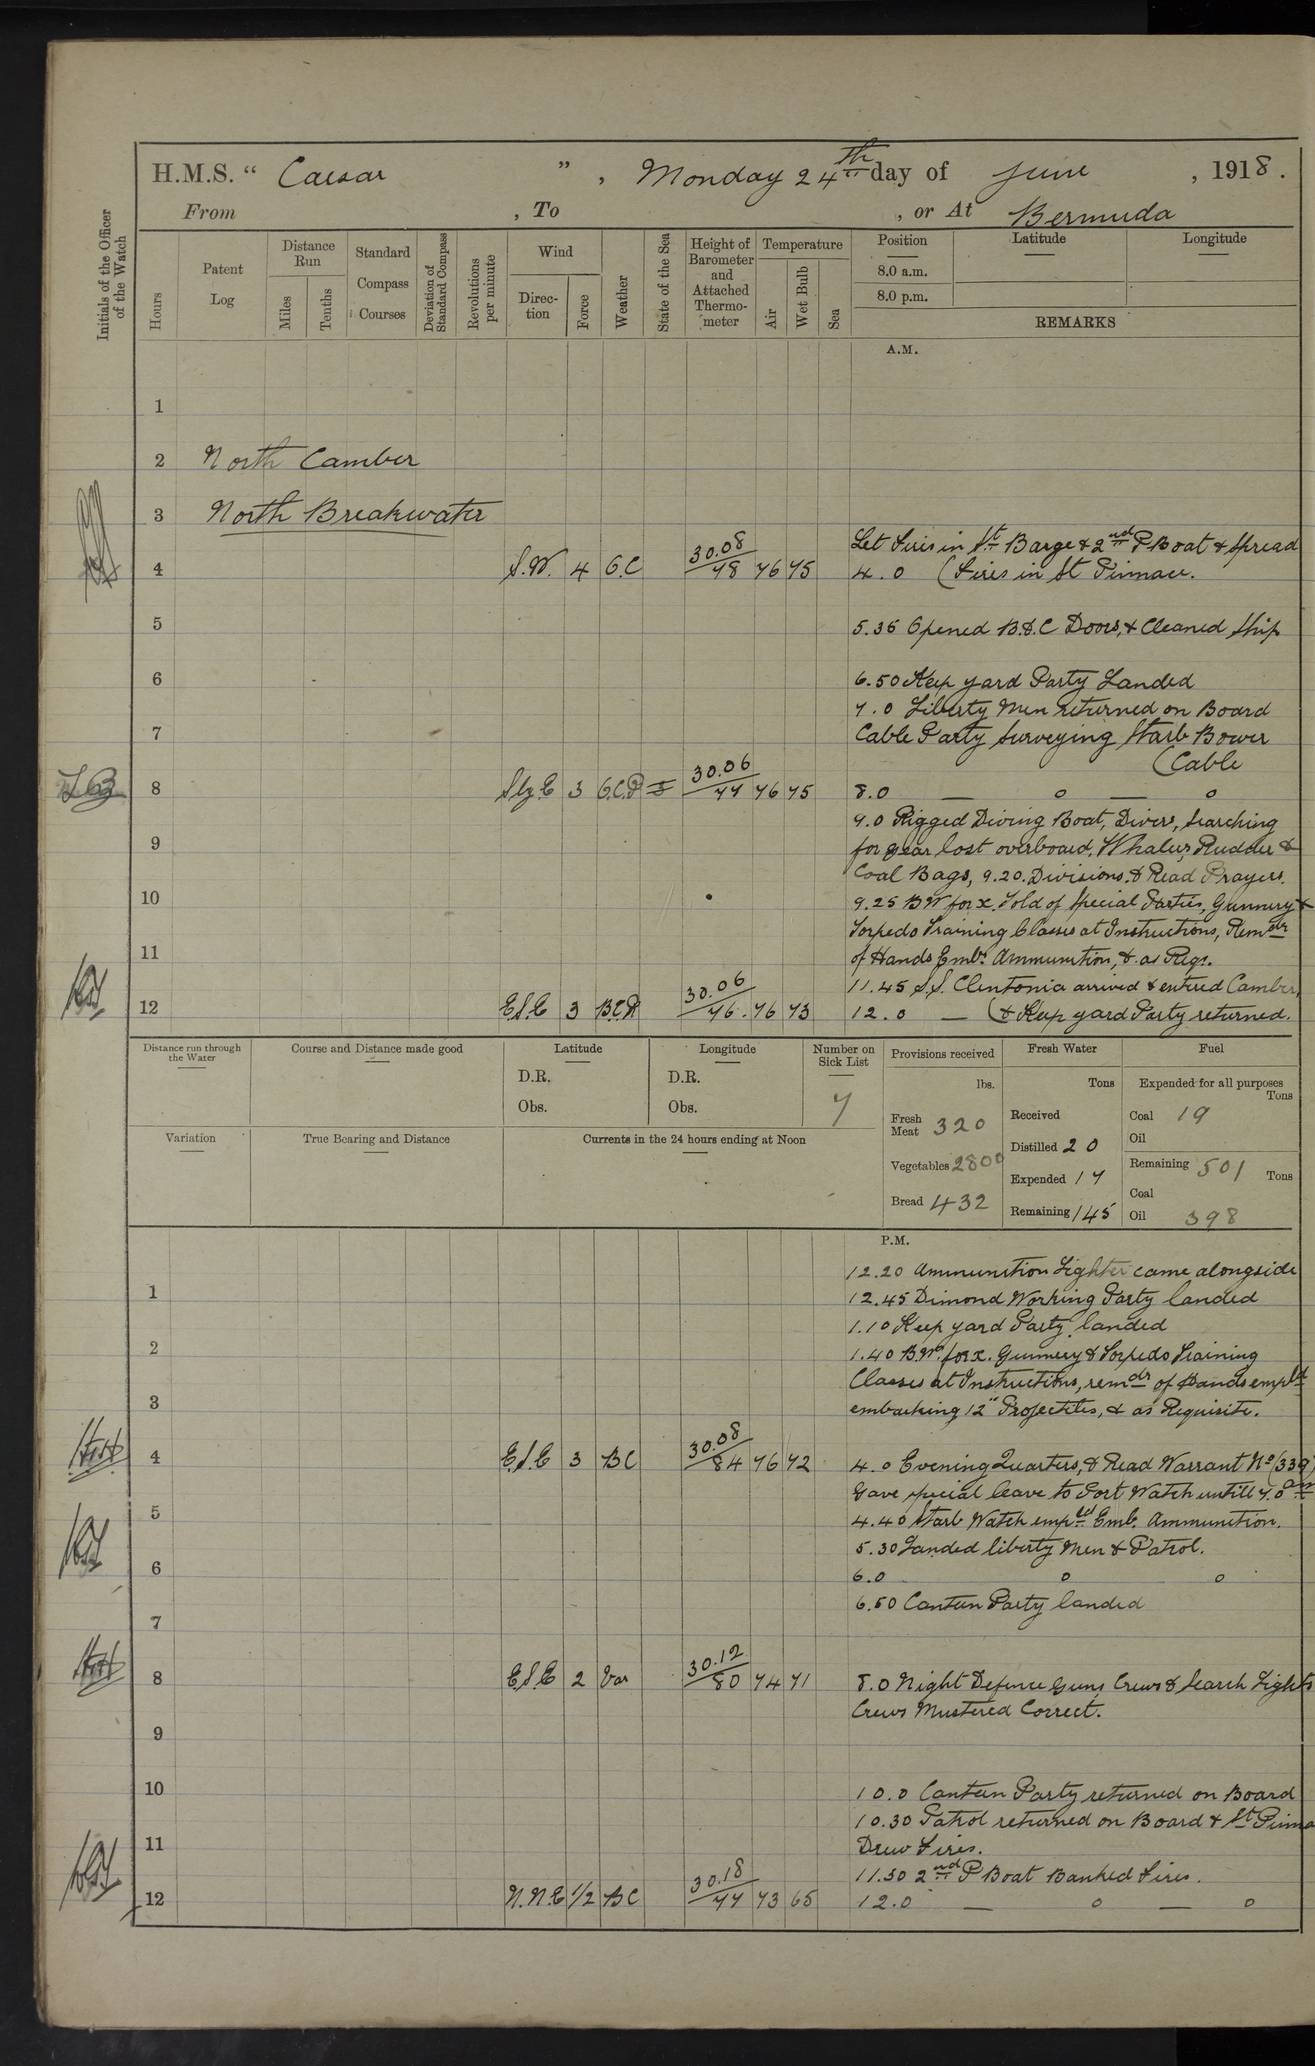 H.M.S. " Caesar ", Monday 24th day of June, 1918.
From , To , or At Bermuda
Initials of the Officer of the Watch
Hours
Patent Log
Distance Run
Miles
Tenths
Standard Compass Courses
Deviation of Standard Compass
Revolutions per minute
Wind
Direction
Force
Weather
State of the Sea
Height of Barometer and Attached Thermometer
Temperature
Air
Wet Bulb
Sea
Position
Latitude
Longitude
8.0 a.m.
8.0 p.m.
REMARKS
A.M.
1
2 North Camber
3 North Breakwater
Let Fires in St Barge & 2nd P Boat & Spread
4 S.W. 4 O.C 30.08/78 76 75 4.0 (Fires in St Pinnace.
5 5.35 Opened B.&.C Doors, & Cleaned Ship
6 6.50 Keep yard Party Landed
7.0 Liberty Men returned on Board
7 Cable Party Surveying Starb Bower
(Cable
8 S by E 3 O.C.P 30.06/77 76 75 8.0 — o — o
9.0 Rigged Diving Boat, Divers, Searching
9 for gear lost overboard, Whaler, Rudder &
Coal Bags, 9.20. Divisions. & Read Prayers.
10 9.25 B.W for x. Told of Special Parties, Gunnery &
Torpedo Training Classes at Instructions, Remdr
11 of Hands Emb. Ammunition, & as Reqr.
11.45 S.S. Clintonia arrived & entered Camber,
12 E.S.E 3 B.C. 30.06/76. 76 73 12.0 — (& Keep yard Party returned.
Distance run through the Water
Course and Distance made good
Latitude
D.R.
Obs.
Longitude
D.R.
Obs.
Number on Sick List
7
Provisions received
lbs.
Fresh Meat 320
Vegetables 2800
Bread 432
Fresh Water
Tons
Received
Distilled 20
Expended 17
Remaining 145
Fuel
Expended for all purposes
Tons
Coal 19
Oil
Remaining 501 Tons
Coal
Oil 398
Variation
True Bearing and Distance
Currents in the 24 hours ending at Noon
P.M.
12.20 Ammunition Lighter came alongside
1 12.45 Dimond Working Party landed
1.10 Keep yard Party landed
2 1.40 B.W. for x. Gunnery & Torpedo Training
Classes at Instructions, remdr of Hands empld
3 embarking 12" Projectiles, & as Requisite.
4 E.S.E 3 BC 30.08/84 76 72 4.0 Evening Quarters, & Read Warrant No (339)
Gave special leave to Port Watch untill 7.0 am
5 4.40 Starb Watch empld Emb. Ammunition.
5.30 Landed liberty Men & Patrol.
6 6.0 o o
6.50 Canteen Party landed
7
8 E.S.E 2 Var 30.12/80 74 71 8.0 Night Defence Guns Crews & Search Lights
Crews Mustered Correct.
9
10 10.0 Canteen Party returned on Board
10.30 Patrol returned on Board & St Pinna
11 Drew Fires.
11.30 2nd P Boat Banked Fires.
12 N.N.E 1/2 BC 30.18/77 73 65 12.0 — o — o